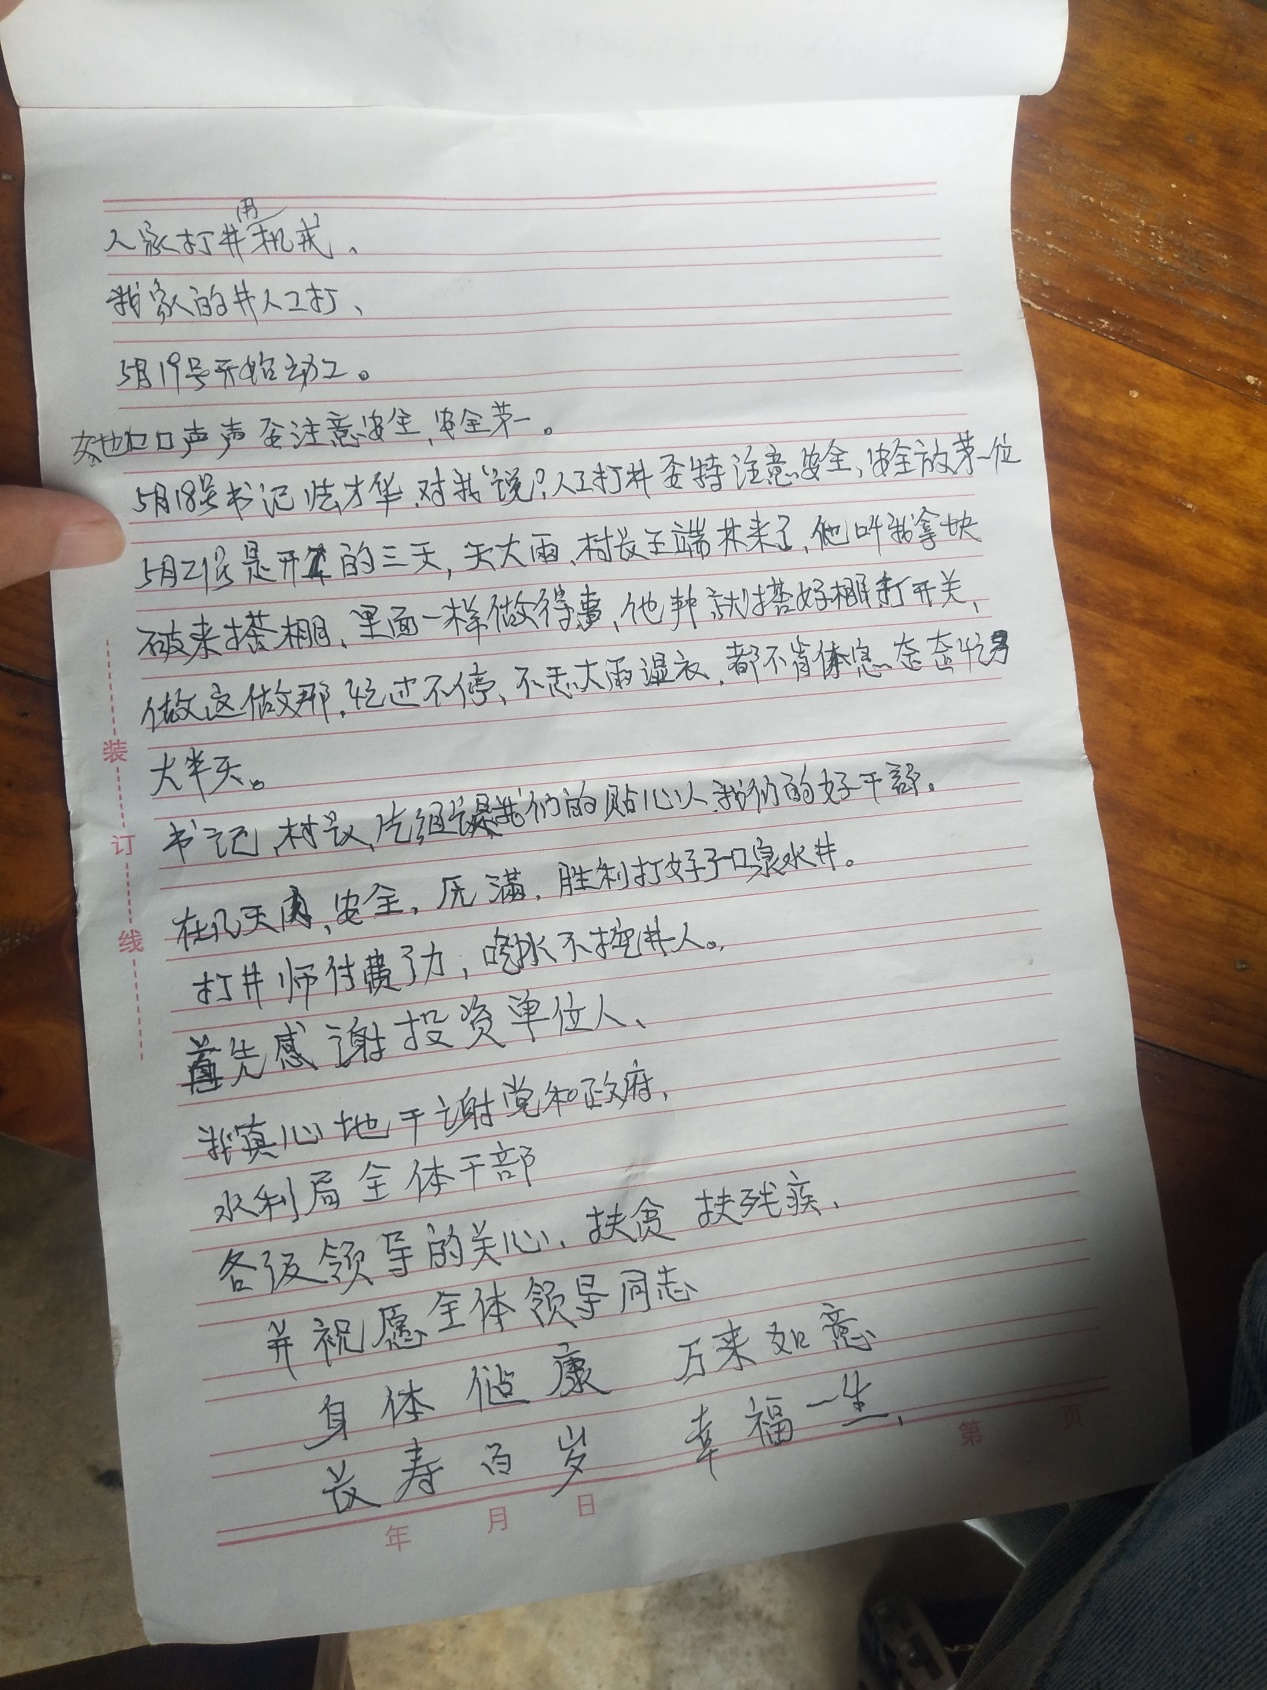 人家打井用机戒、
我家的井人工打、
5月19号开始动工。
口声声要注意安全,安全第一。
5月18号书记 才华,对我说?人工打井要特注意安全,安全放第一位
5月21号是开工的三天,天大雨,村长王端林来了,他叫我拿块
破来搭棚,里面一样做得事,他 就搭好棚打开关,
做这做那,忙过不停,不忌大雨湿衣,都不肯体息 忙了
大半天。
书记,村长,片组 我们的贴心人我们的好干部。
在几天内,安全,厉满,胜利打好了一口泉水井。
打井师付费了力,吃水不挖井人。
首先感谢投资单位人、
我真心地干谢党和政府,
水利局全体干部
各级领导的关心,扶贫 扶残疾,
并祝愿全体领导同志
身体健康 万来如意
长寿百岁 幸福一生,
装
订
线
第 页
年 月 日